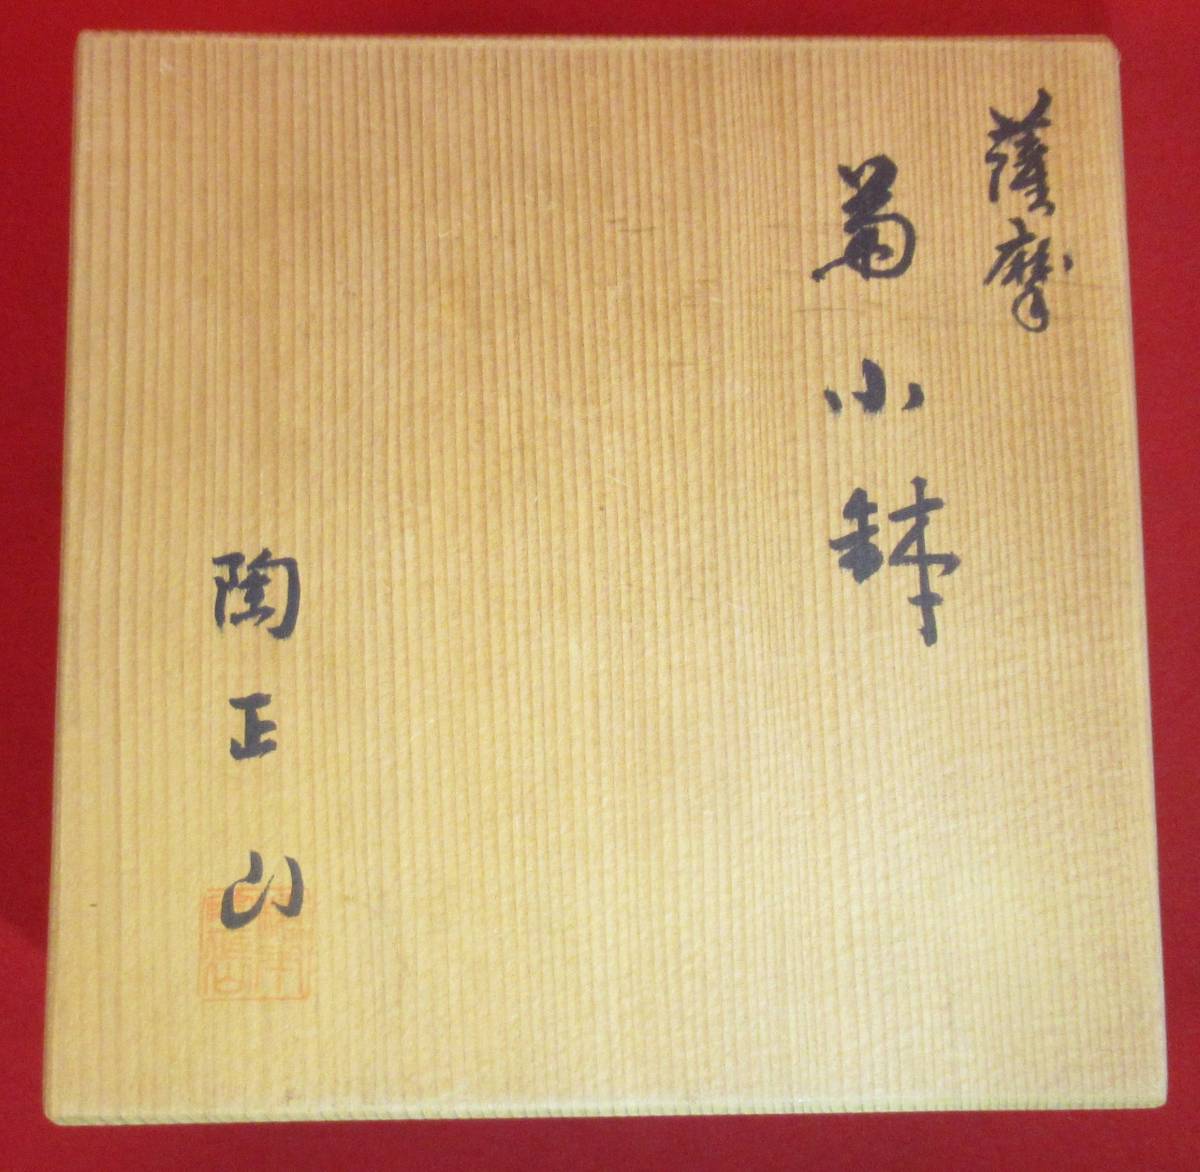 薩摩
菊小鉢
陶正山